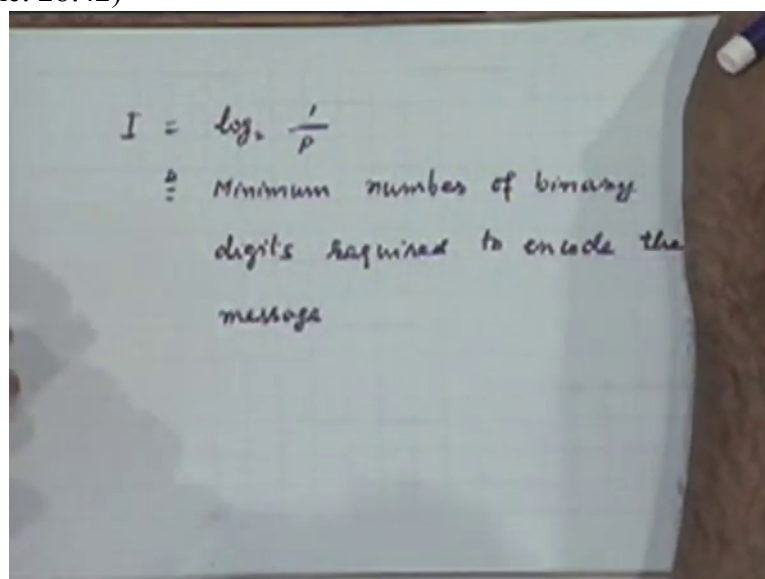 I = log₂ 1/P
≜ Minimum number of binary
digits required to encode the
message